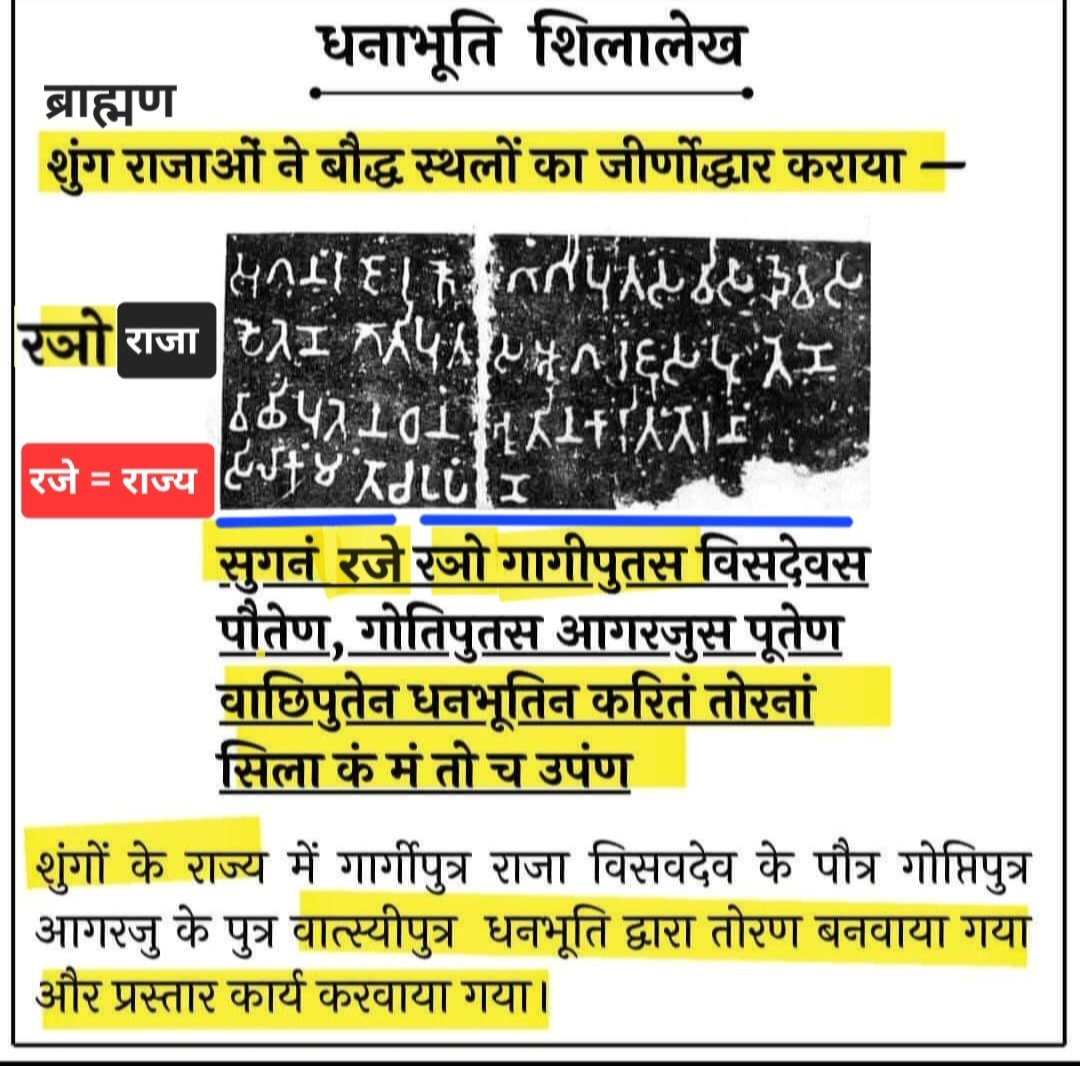 धनाभूति शिलालेख
ब्राह्मण
शुंग राजाओं ने बौद्ध स्थलों का जीर्णोद्धार कराया —
रञो राजा
रजे = राज्य
सुगनं रजे रञो गागीपुतस विसदेवस
पौतेण, गोतिपुतस आगरजुस पूतेण
वाछिपुतेन धनभूतिन करितं तोरनां
सिला कं मं तो च उपंण
शुंगों के राज्य में गार्गीपुत्र राजा विसवदेव के पौत्र गोप्तिपुत्र
आगरजु के पुत्र वात्स्यीपुत्र धनभूति द्वारा तोरण बनवाया गया
और प्रस्तार कार्य करवाया गया।